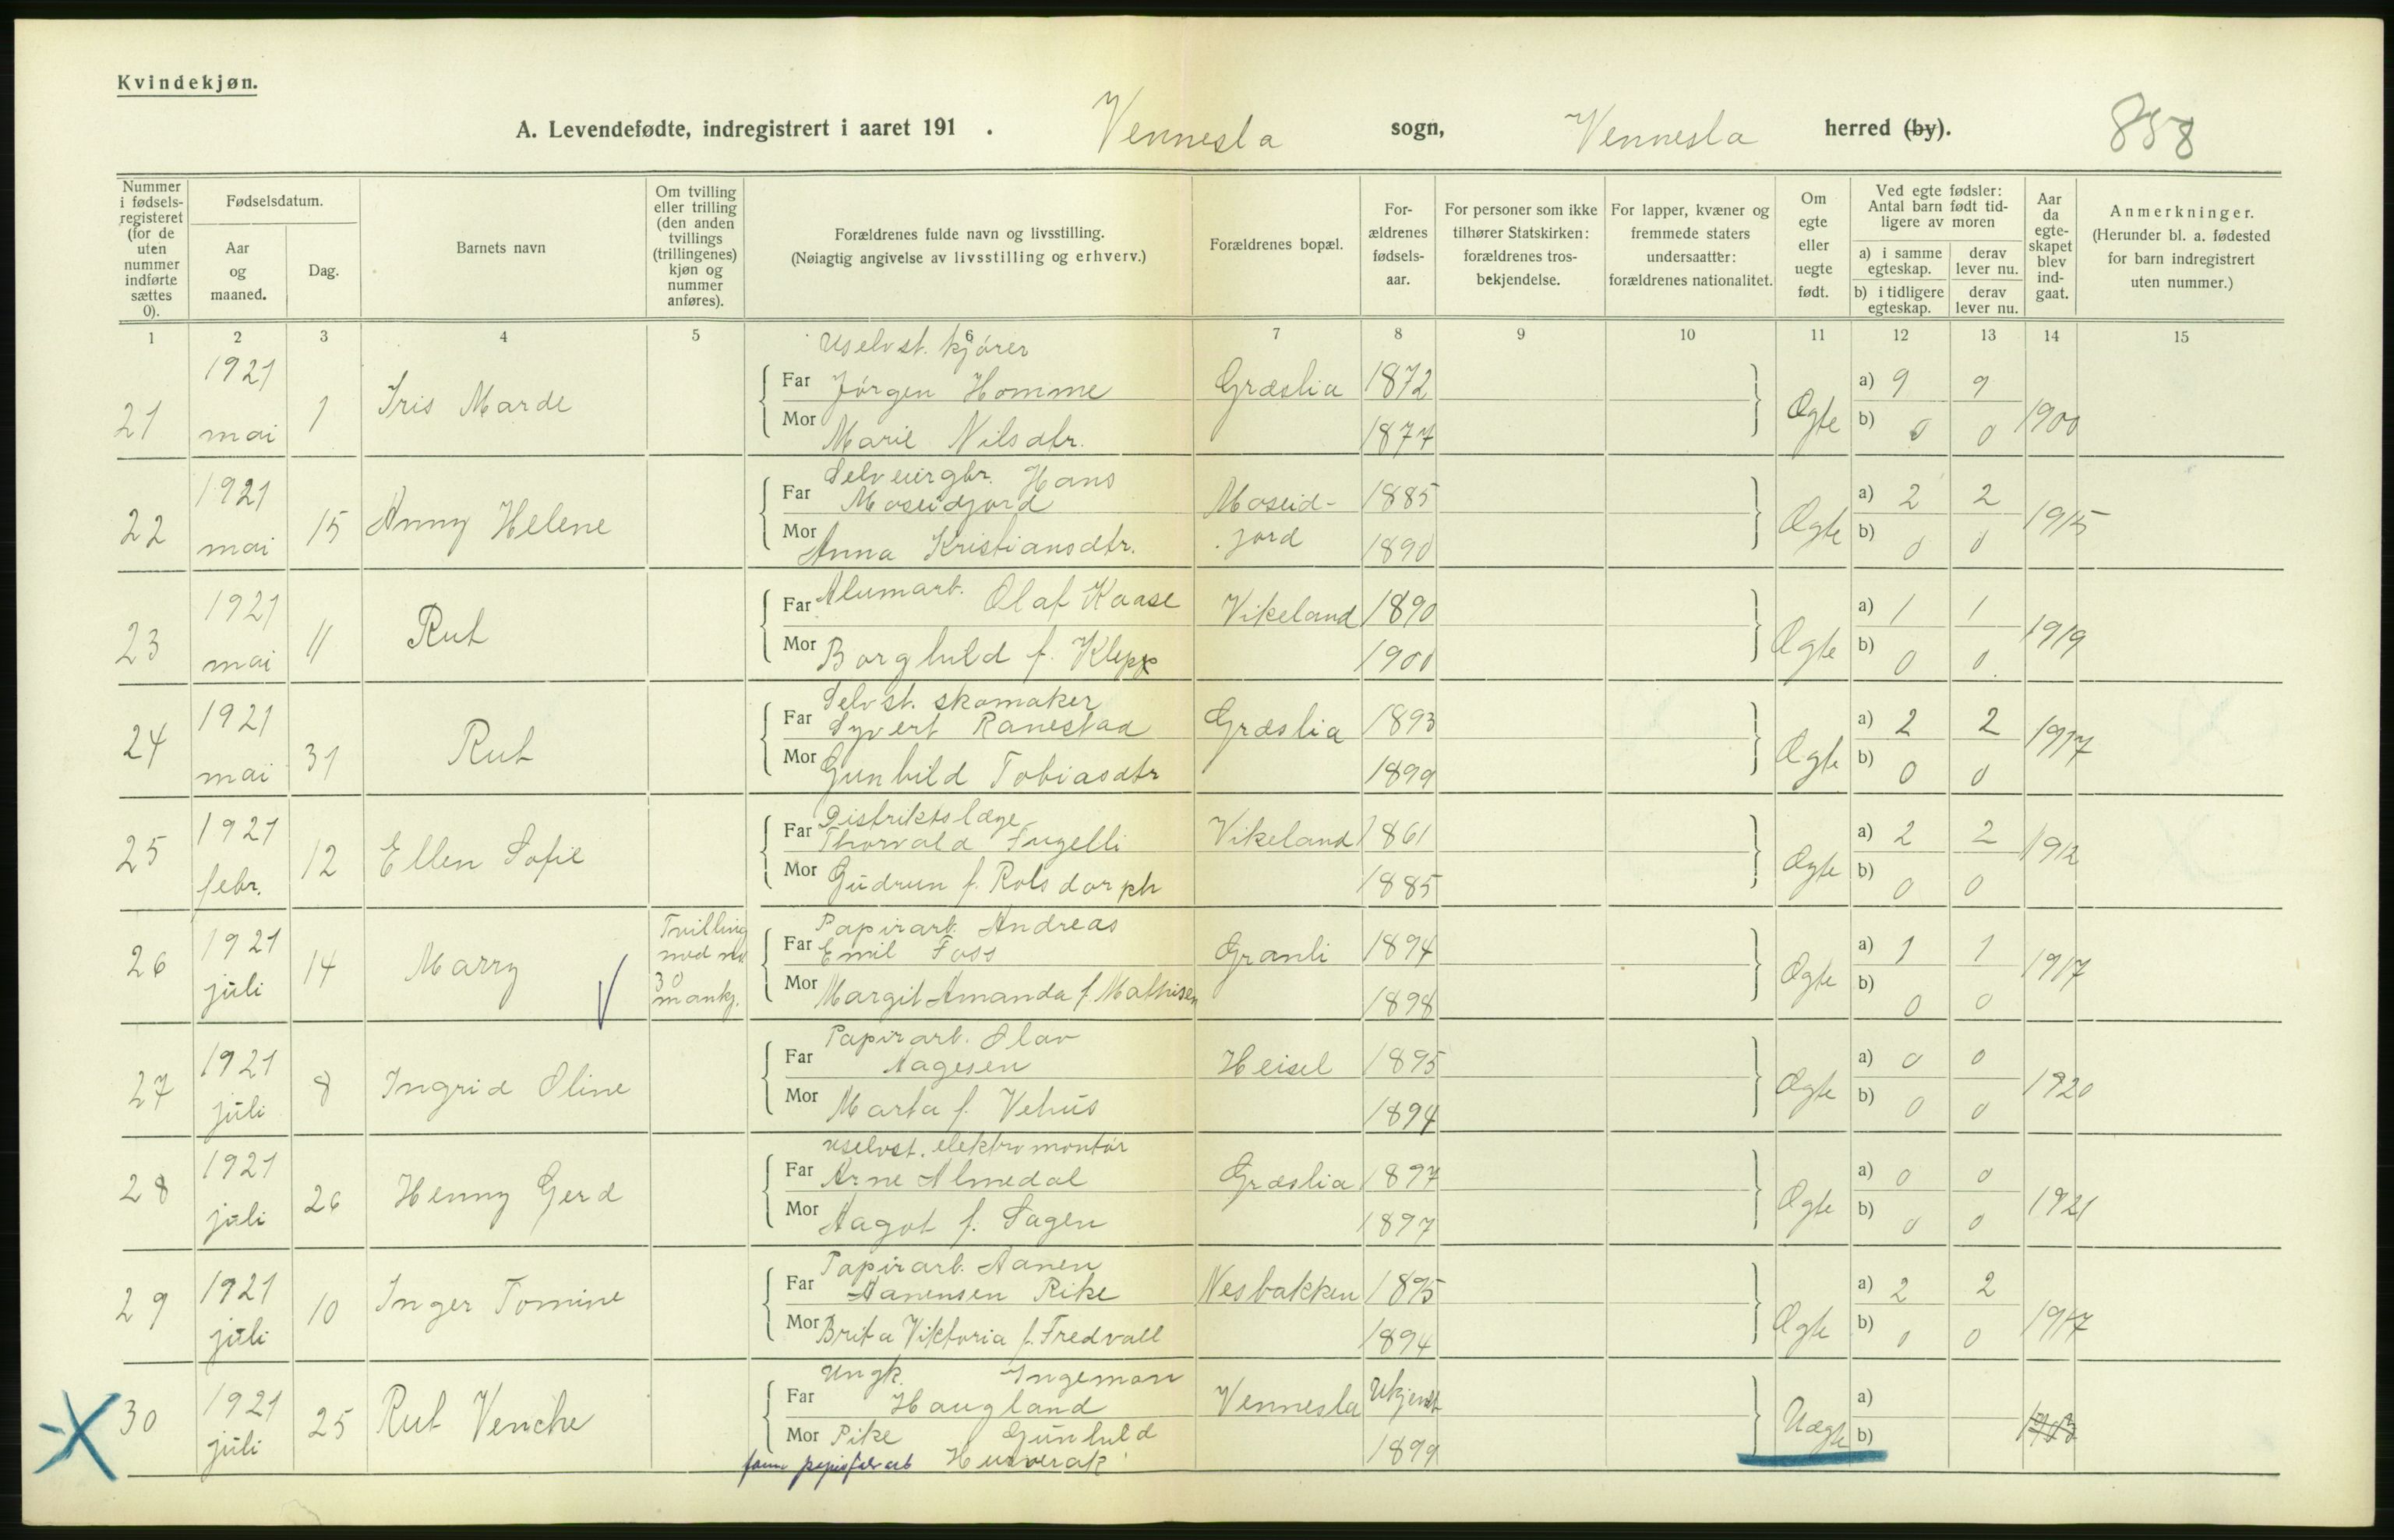 Kvindekjøn.
A. Levendefødte, indregistrert i aaret 191 . Vennesla sogn, Vennesla herred (by). 858
Nummer i fødselsregisteret (for de uten nummer indførte sættes 0).
Fødselsdatum.
Aar og maaned.
Dag.
Barnets navn
Om tvilling eller trilling (den anden tvillings (trillingenes) kjøn og nummer anføres).
Forældrenes fulde navn og livsstilling.
(Nøiagtig angivelse av livsstilling og erhverv.)
Forældrenes bopæl.
Forældrenes fødselsaar.
For personer som ikke tilhører Statskirken: forældrenes trosbekjendelse.
For lapper, kvæner og fremmede staters undersaatter: forældrenes nationalitet.
Om egte eller uegte født.
Ved egte fødsler: Antal barn født tidligere av moren
a) i samme egteskap.
derav lever nu.
b) i tidligere egteskap.
derav lever nu.
Aar da egteskapet blev indgaat.
Anmerkninger.
(Herunder bl. a. fødested for barn indregistrert uten nummer.)
1 2 3 4 5 6 7 8 9 10 11 12 13 14 15
Uselvst. kjører
21 1921 mai 1 Iris Marde Far Jørgen Homme Græslia 1872 Ægte a) 9 9 1900
Mor Marie Nilsdtr. 1877 b) 0 0
Selveiergbr. Hans
22 1921 mai 15 Anny Helene Far Moseidjord Moseidjord 1885 Ægte a) 2 2 1915
Mor Anna Kristiansdtr. 1890 b) 0 0
23 1921 mai 11 Rut Far Alumarb. Olaf Kaase Vikeland 1890 Ægte a) 1 1 1919
Mor Borghild f. Klepp 1900 b) 0 0
Selvst. skomaker
24 1921 mai 31 Rut Far Syvert Ranestad Græslia 1893 Ægte a) 2 2 1917
Mor Gunhild Tobiasdtr 1899 b) 0 0
Distriktslæge
25 1921 febr. 12 Ellen Sofie Far Thorvald Fugelli Vikeland 1861 Ægte a) 2 2 1912
Mor Gudrun f. Rolsdorph 1885 b) 0 0
Papirarb. Andreas
26 1921 juli 14 Marry Tvilling med no 30 mankj. Far Emil Foss Granli 1894 Ægte a) 1 1 1917
Mor Margit Amanda f. Mathisen 1898 b) 0 0
Papirarb. Olav
27 1921 juli 8 Ingrid Oline Far Aagesen Heisel 1895 Ægte a) 0 0 1920
Mor Marta f. Vehus 1894 b) 0 0
uselvst. elektromontør
28 1921 juli 26 Henny Gerd Far Arne Almedal Græslia 1897 Ægte a) 0 0 1921
Mor Aagot f. Sagen 1897 b) 0 0
Papirarb. Aanen
29 1921 juli 10 Inger Tomine Far Aanensen Rike Nesbakken 1895 Ægte a) 2 2 1917
Mor Brita Viktoria f. Fredvall 1894 b) 0 0
Ungk. Ingeman
30 1921 juli 25 Rut Venche Far Haugland Vennesla Ukjendt Uægte a)
Mor Pike Gunhild 1899 b)
Hunverak